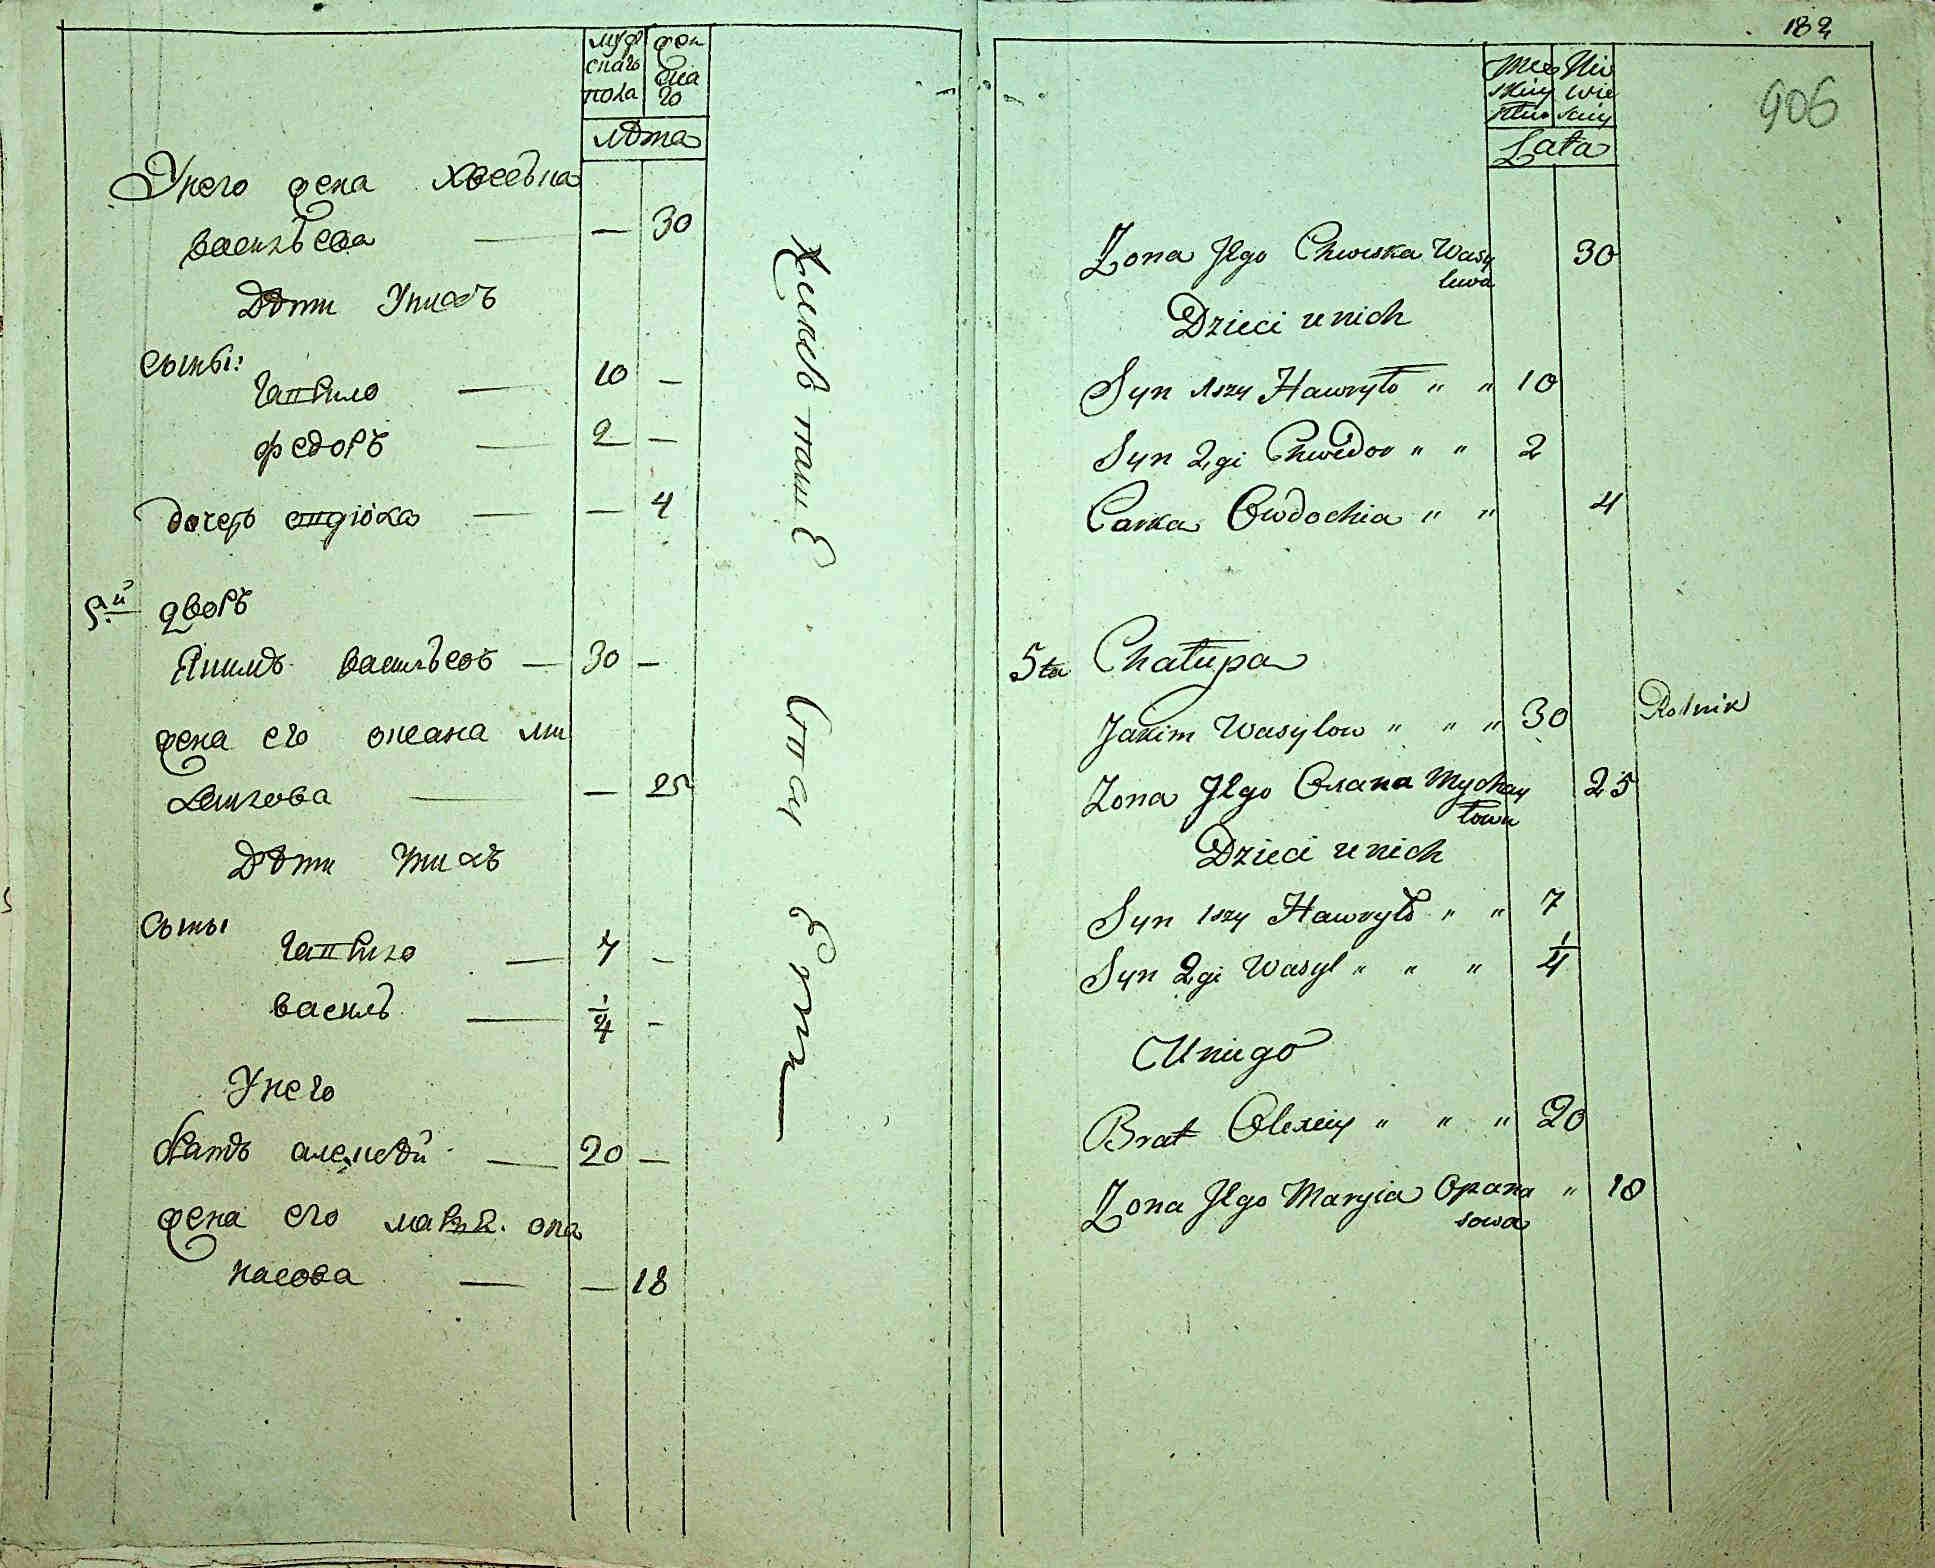 мужескаго пола
женскаго
лѣта
Унего жена Хвесьна
васильева — — 30
Дѣти Унихъ
сыны:
гаврило — 10 —
федоръ — 2 —
дочерь — — 4
5й дворъ
Якимъ васильевъ — 30 —
жена его оксана ми
хайлова — — 25
Дѣти Унихъ
сыны
гаврило — 7 —
василь — 1/4 —
Унего
братъ алексѣй — 20 —
жена его марія опа
насова — — 18
182
906
Męs Nie
skiey wie
skiey
Lata
Zona Jego Chweska Wasy 30
lewa
Dzieci u nich
Syn 1szy Hawryło " " 10
Syn 2gi Chwedor " " 2
Carka Owdochia " " 4
5ta Chałupa
Jakim Wasylow " " " 30 Rolnik
Zona Jego Oxana Mychay 25
łowa
Dzieci u nich
Syn 1szy Hawryło " " 7
Syn 2gi Wasyl " " " 1/4
U niego
Brat Olexiy " " " 20
Zona Jego Maryia Opana " 18
sowa